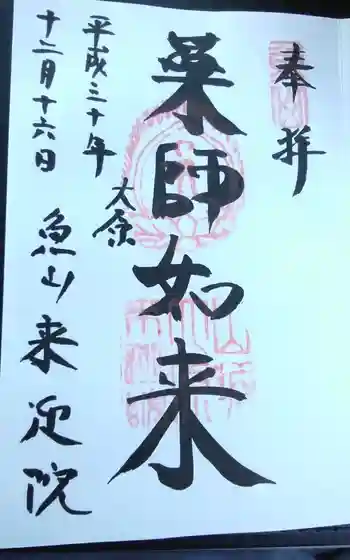 奉拝
薬師如来
大原
平成三十年
十二月十六日
魚山来迎院